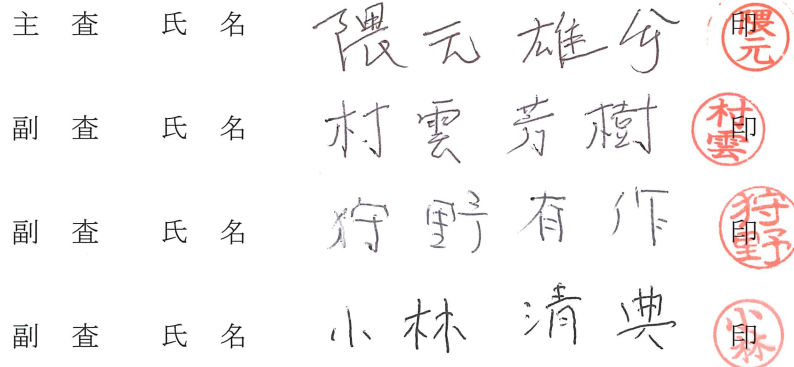 主査 氏名 隈元雄介 印 隈元
副査 氏名 村雲芳樹 印 村雲
副査 氏名 狩野有作 印 狩野
副査 氏名 小林清典 印 小林